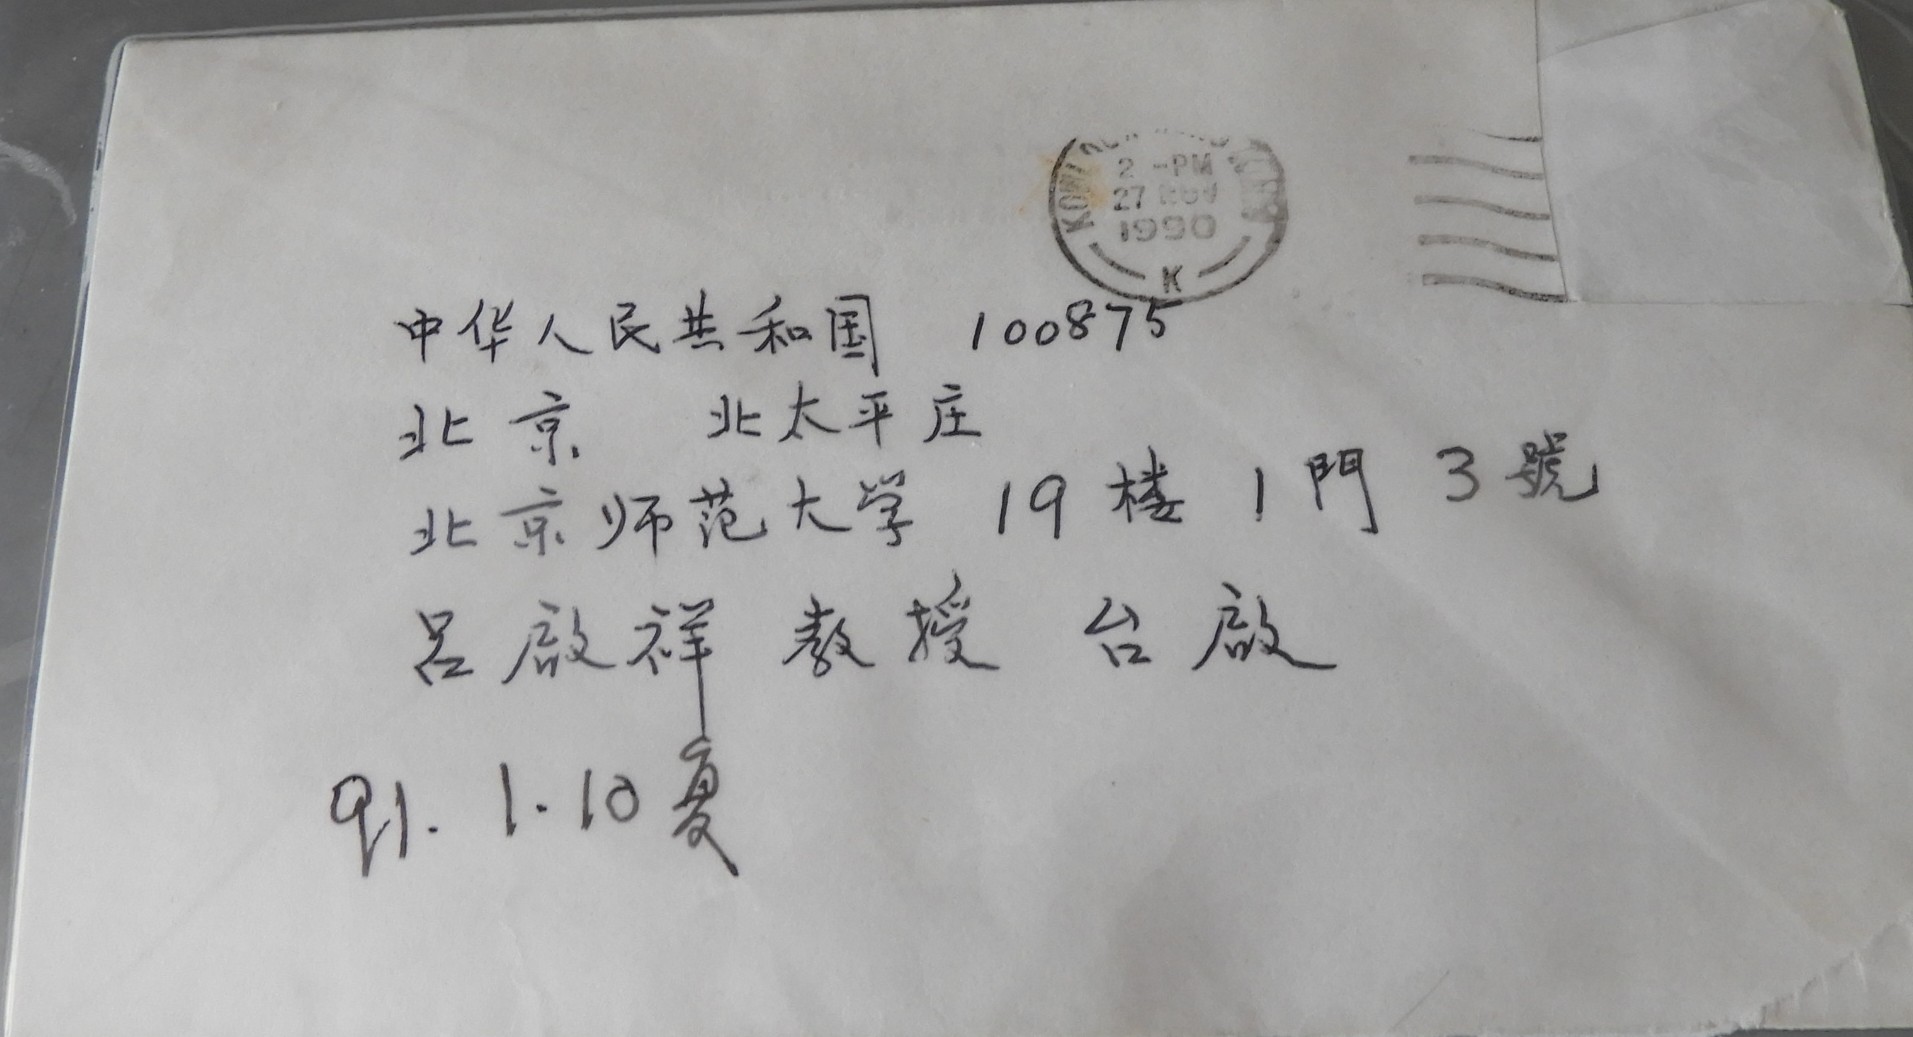 2 -PM
27 NOV
1990
K
中华人民共和国 100875
北京 北太平庄
北京师范大学 19 楼 1 門 3 號
吕啟祥 教授 台啟
91. 1. 10 复